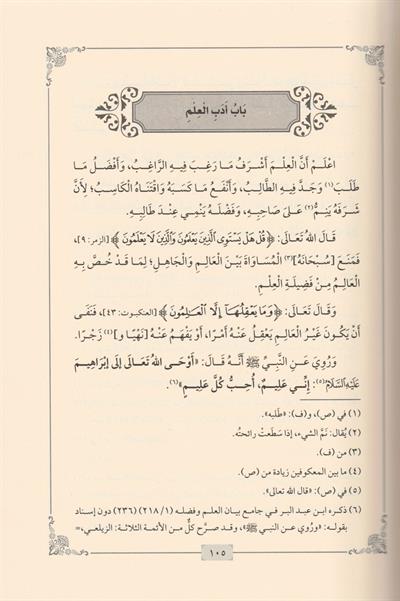 بَابُ أَدَبِ الْعِلْمِ
اعْلَمْ أَنَّ الْعِلْمَ أَشْرَفُ مَا رَغِبَ فِيهِ الرَّاغِبُ، وَأَفْضَلُ مَا
طَلَبَ(١) وَجَدَّ فِيهِ الطَّالِبُ، وَأَنْفَعُ مَا كَسَبَهُ وَاقْتَنَاهُ الْكَاسِبُ؛ لِأَنَّ
شَرَفَهُ يَنِمُّ(٢) عَلَى صَاحِبِهِ، وَفَضْلَهُ يَنْمِي عِنْدَ طَالِبِهِ.
قَالَ اللهُ تَعَالَى: ﴿قُلْ هَلْ يَسْتَوِي الَّذِينَ يَعْلَمُونَ وَالَّذِينَ لَا يَعْلَمُونَ﴾ [الزمر: ٩]،
فَمَنَعَ [سُبْحَانَهُ](٣) الْمُسَاوَاةَ بَيْنَ الْعَالِمِ وَالْجَاهِلِ؛ لِمَا قَدْ خُصَّ بِهِ
الْعَالِمُ مِنْ فَضِيلَةِ الْعِلْمِ.
وَقَالَ تَعَالَى: ﴿وَمَا يَعْقِلُهَا إِلَّا الْعَالِمُونَ﴾ [العنكبوت: ٤٣]، فَنَفَى
أَنْ يَكُونَ غَيْرُ الْعَالِمِ يَعْقِلُ عَنْهُ أَمْرًا، أَوْ يَفْهَمُ عَنْهُ [نَهْيًا و](٤) زَجْرًا.
وَرُوِيَ عَنِ النَّبِيِّ ﷺ أَنَّهُ قَالَ: «أَوْحَى اللهُ تَعَالَى إِلَى إِبْرَاهِيمَ
عَلَيْهِ السَّلَامُ(٥): إِنِّي عَلِيمٌ، أُحِبُّ كُلَّ عَلِيمٍ»(٦).
(١) في (ص)، و(ف): «طلبه».
(٢) يُقال: نَمَّ الشيء، إذا سَطَعَتْ رائحتُه.
(٣) من (ف).
(٤) ما بين المعكوفين زيادة من (ص).
(٥) في (ص): «قال الله تعالى».
(٦) ذكره ابن عبد البر في جامع بيان العلم وفضله (٢١٨/١) (٢٣٦) دون إسناد
بقوله: «ورُوي عن النبي ﷺ»، وقد صرَّح كلٌّ من الأئمة الثلاثة: الزيلعي، =
١٠٥